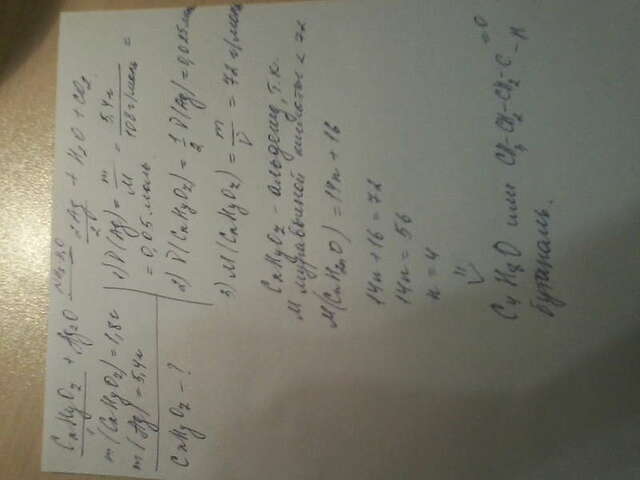 CxHyOz + Ag2O NH3·H2O 2Ag + H2O + CO2
m(CxHyOz) = 1,8г
m(Ag) = 5,4г
CxHyOz - ?
1) ν(Ag) = m/M = 5,4г/108г/моль =
= 0,05 моль.
2) ν(CxHyOz) = 1/2 ν(Ag) = 0,025моль
3) M(CxHyOz) = m/ν = 72 г/моль
CxHyOz - альдегид, т.к.
M муравьиной кислоты < 72
M(CnH2nO) = 14n + 16
14n + 16 = 72
14n = 56
n = 4
⇓
C4H8O или CH3-CH2-CH2-C=O-H
бутаналь.